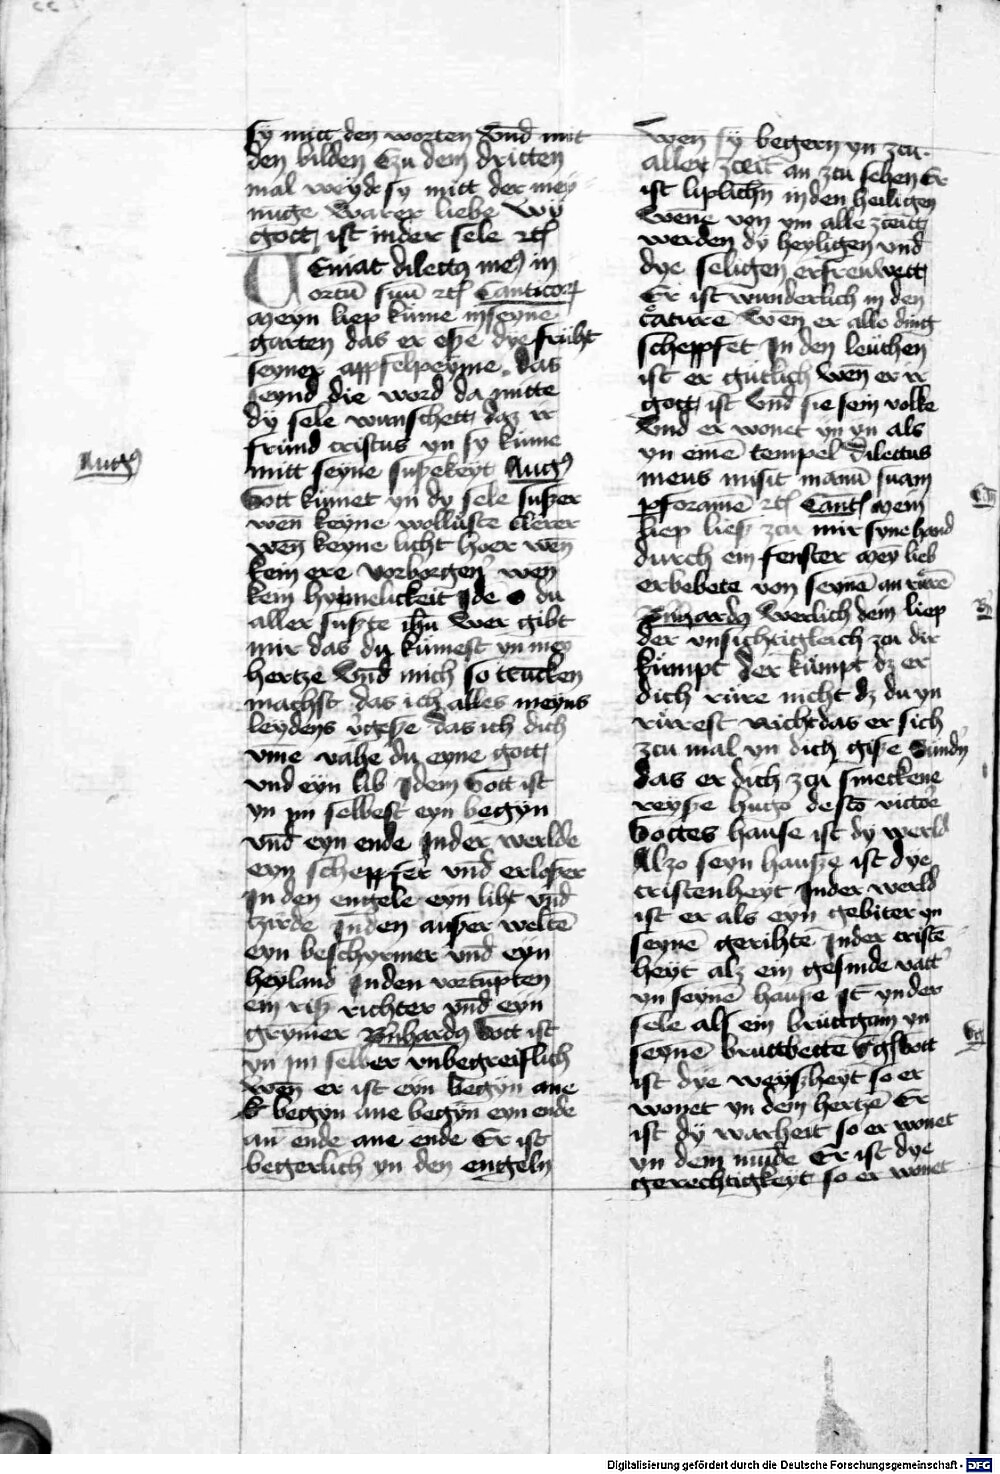 sy mitt den worten Vnd mitt
den bilden Czu dem dritten
mal weyde sy mitt der mey
nuge warer liebe Wy
gott ist in der sele etc
Ueniat dilectus meus in
ortū suū etc Canticorum
Meyn liep kūme in seyne
garten das er eße dye früht
seyner appfelpeyme. das
seynd die word da mitte
dy sele wunschett daz ir
frund cristus yn sy kūme
mitt seyne sußekeyt Augus
Augus
Gott kūmet yn dy sele sußer
wen keyne wolluste klerer
wen keyne licht hoer wen
kein ere vorborgen wen
kein hymelickeit Ide du
aller sußte ihū Wer gibt
mir das du kūmest yn mey
hertze Vnd mich so trucken
machst das ich alles meyns
leydens v̄geße das ich dich
vme vahe du eyne gott
vnd eyn lib Idem Gott ist
yn im selbest eyn begyn
vnd eyn ende In der werlde
eyn schepffer vnd erloßer
In den engele eyn liht vnd
tzirde In den außer welte
eyn beschyrmer vnd eyn
heyland In den vortūpten
ein richter vnd eyn
grymer Bnhardus Gott ist
yn im selber vnbegreiflich
wen er ist eyn begyn ane
begyn ane begyn eyn ende
an ende ane ende Er ist
begerlich yn den engeln
wen sy begern yn zcu
aller zceit an zcu sehen Er
ist liplichn in den heiligen
Wene von ym alle zceitt
werden dy heyligen vnd
dye seligen erfreuwett
Er ist wunderlich in den
creature Wen er alle ding
scheppfet In den leuchen
ist er gütlich wen er ir
gott ist Vnd sie sein volke
Vnd er wonet yn yn als
yn eine tempel Dilectus
meus misit manū suam
p foramē etc Cant Mein
liep ließ zcu mir syne hand
durch ein fenster Mey lieb
erbebete von seyne an rure
Bnhardus Werlich dein liep
der vnsichtigleich zcu dir
kümpt der kümpt dz er
dich rüre nicht dz du yn
rürest Nicht das er sich
zcu mal yn dich giße Sundn
das er dich zcu smeckene
reyße Hugo de sto victore
Gottes hause ist dy werld
Alzo seyn hauße ist dye
cristenheyt In der werld
ist er als eyn gebiter yn
seyne gerihte In der criste
heyt alz ein gesinde vatt
yn seyne hauße It yn der
sele als ein brüttgam yn
seyne bruttbette Gott
ist dye weyßheyt so er
wonet yn dem hertze Er
ist dy warheit so er wonet
yn dem mūde Er ist dye
gerechtigkeyt so er wonet
Digitalisierung gefördert durch die Deutsche Forschungsgemeinschaft - DFG